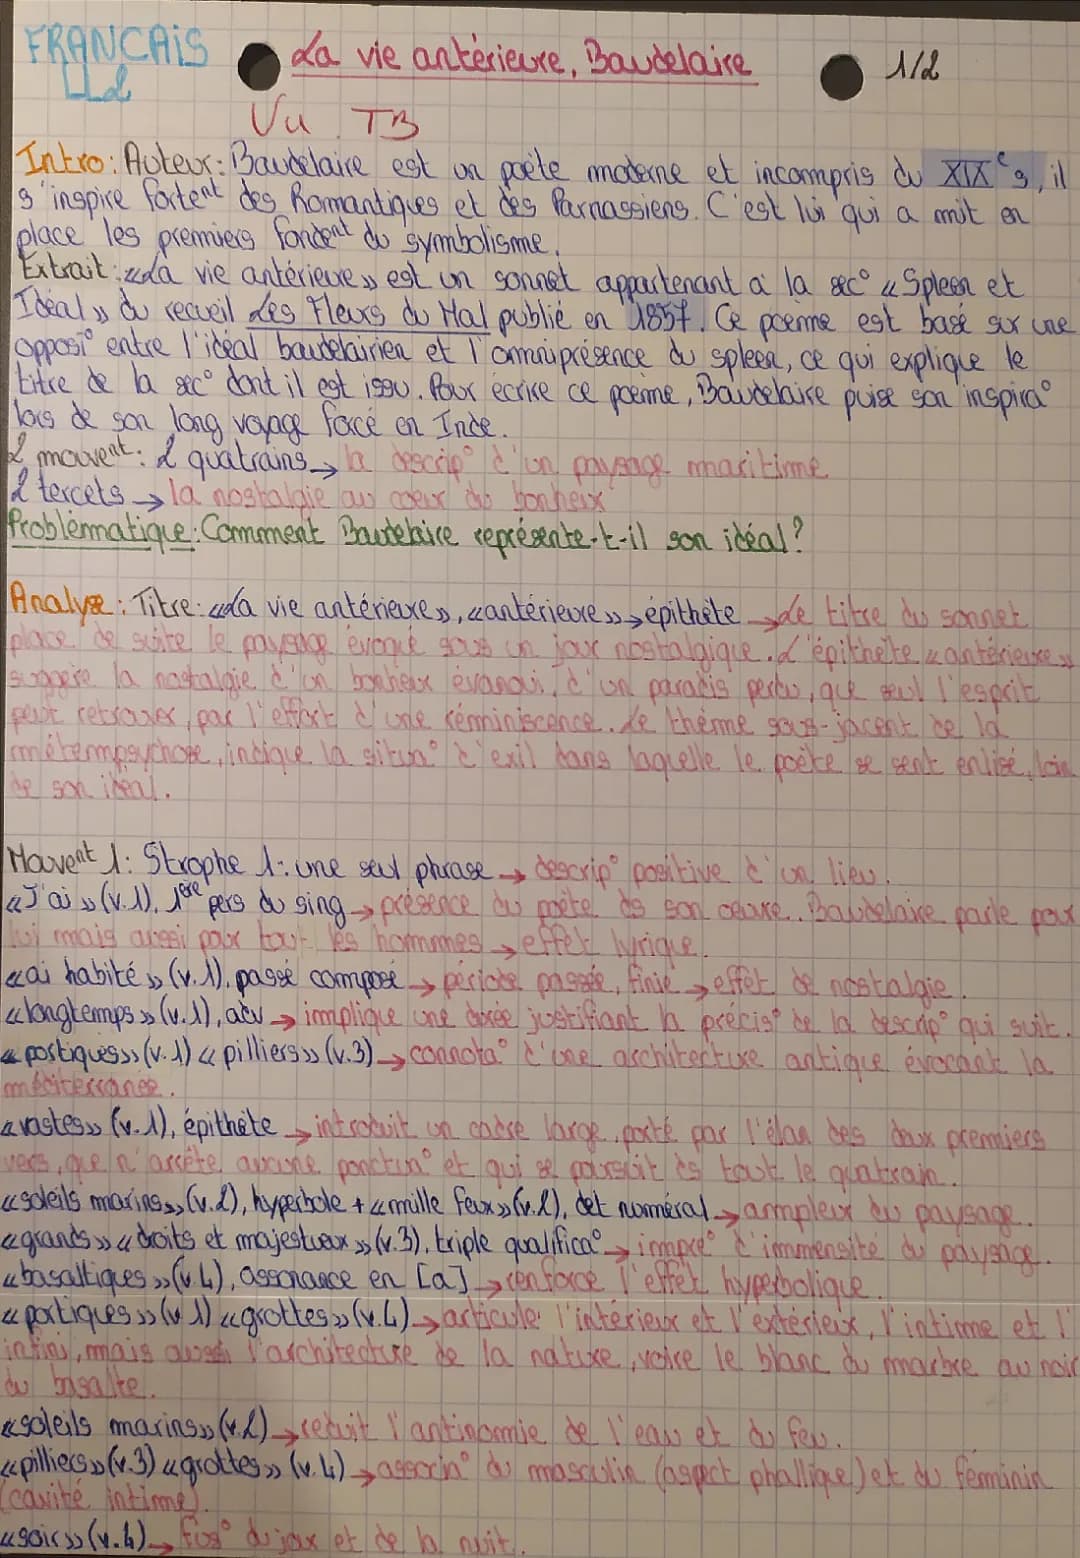 FRANCAIS
LL2
La vie antérieure, Baudelaire
1/2
Vu TB
Intro: Auteur: Baudelaire est un poète moderne et incompris du XIXᵉs, il
s'inspire fortent des Romantiques et des Parnassiens. C'est lui qui a mit en
place les premiers fondent du symbolisme.
Extrait: «La vie antérieure» est un sonnet appartenant à la sec° «Spleen et
Idéal» du recueil Les Fleurs du Mal publié en 1857. Ce poème est basé sur une
opposi° entre l'idéal baudelairien et l'omniprésence du spleen, ce qui explique le
titre de la sec° dont il est issu. Pour écrire ce poème, Baudelaire puise son inspira°
lors de son long voyage forcé en Inde.
2 mouvent: 2 quatrains → la descrip° d'un paysage maritime
2 tercets → la nostalgie au coeur du bonheur
Problématique: Comment Baudelaire représente-t-il son idéal?
Analyse: Titre: «La vie antérieure», «antérieure» → épithète → Le titre du sonnet
place de suite le paysage évoqué sous un jour nostalgique. L'épithète «antérieure»
suggère la nostalgie d'un bonheur évanoui, d'un paradis perdu, que seul l'esprit
peut retrouver, par l'effort d'une réminiscence. Le thème sous-jacent de la
métempsychose, indique la situa° d'exil dans laquelle le poète se sent enlisé, loin
de son idéal.
Mouvent 1: Strophe 1: une seul phrase → descrip° positive d'un lieu.
«J'ai» (v.1), 1ère pers du sing → présence du poète ds son oeuvre. Baudelaire parle pour
lui mais aussi pour tout les hommes → effet lyrique.
«ai habité» (v.1), passé composé → période passée, finie → effet de nostalgie.
«longtemps» (v.1), adv → implique une durée justifiant la précis° de la descrip° qui suit.
«portiques» (v.1) «pilliers» (v.3) → connota° d'une architecture antique évocant la
méditerranée.
«vastes» (v.1), épithète → introduit un cadre large, porté par l'élan des deux premiers
vers, que n'arrête aucune ponctua° et qui se poursuit ds tout le quatrain.
«soleils marins» (v.2), hyperbole + «mille feux» (v.2), det numéral → ampleur du paysage.
«grands» «droits et majestueux» (v.3), triple qualifica° → impre° d'immensité du paysage.
«basaltiques» (v.4), assonance en [a] → renforce l'effet hyperbolique.
«portiques» (v.1) «grottes» (v.4) → articule l'intérieur et l'extérieur, l'intime et l'
infini, mais aussi l'architecture de la nature, voire le blanc du marbre au noir
du basalte.
«soleils marins» (v.2) → reduit l'antinomie de l'eau et du feu.
«pilliers» (v.3) «grottes» (v.4) → associa° du masculin (aspect phallique) et du féminin
(cavité intime).
«soir» (v.4) → fus° du jour et de la nuit.